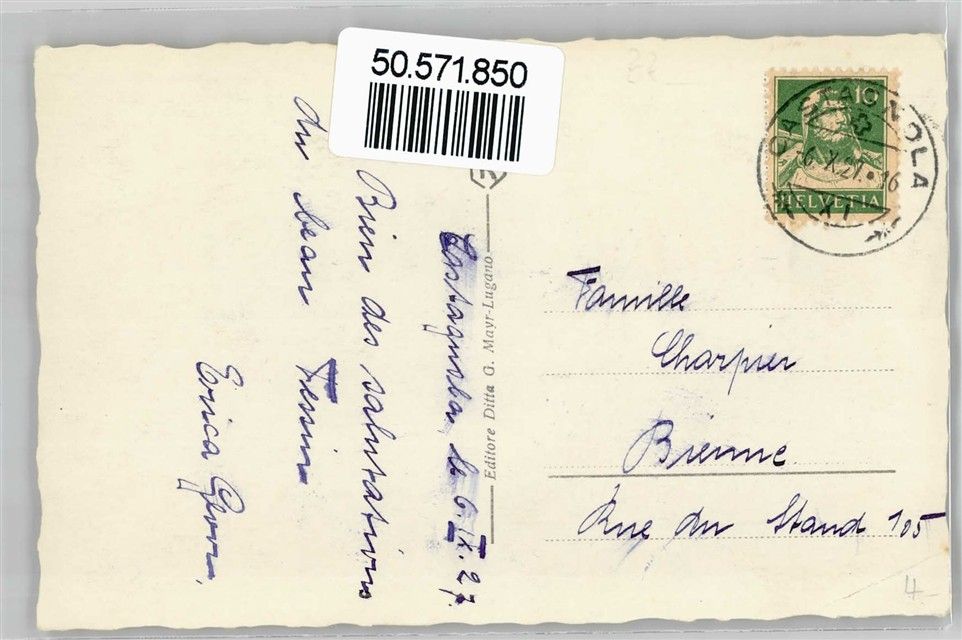 50.571.850
10
CASTAGNOLA
6.X.27.16
XI
HELVETIA
Castagnola le 6.X.27.
Bien des salutations
du beau Tessin
Erica
Editore Ditta G. Mayr-Lugano
Famille
Charpier
Bienne
Rue du Stand 105
4